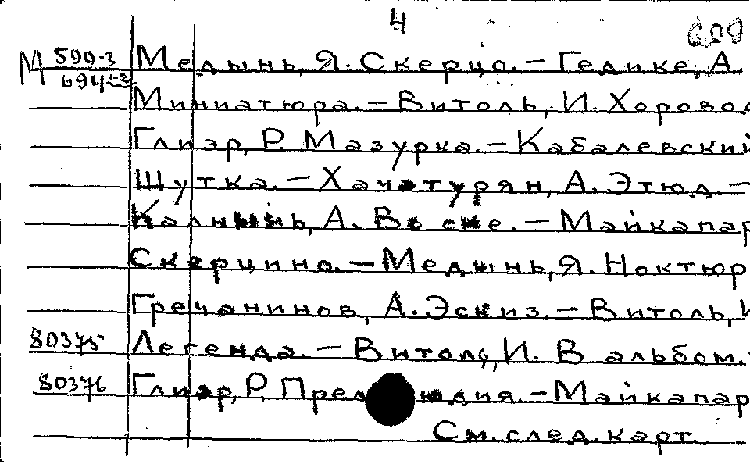 4
М 590-3 Медынь, Я. Скерцо. – Гедике, А.
694-3
Миниатюра. – Витоль, И. Хоровод
Глиэр, Р. Мазурка. – Кабалевский
Шутка. – Хачатурян, А. Этюд. –
Калнынь, А. Во сне. – Майкапар
Скерцино. – Медынь, Я. Ноктюр
Гречанинов, А. Эскиз. – Витоль, И
80375 Легенда. – Витоль, И. В альбом.
80376 Глиэр, Р. Прелюдия. – Майкапар
См. след. карт.